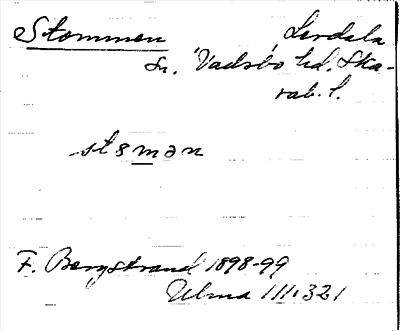 Stommen Lerdala
Sn. Vadsbo hd. Ska-
rab. l.
stəmən
F. Bergstrand 1898-99
Ulma 111.321